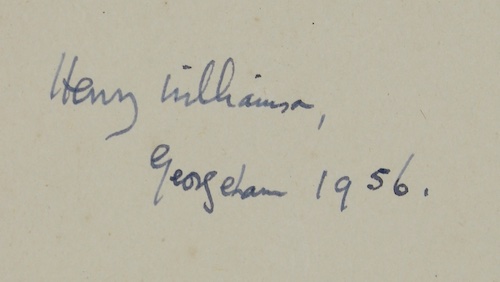 Henry Williamson,
Georgeham 1956.